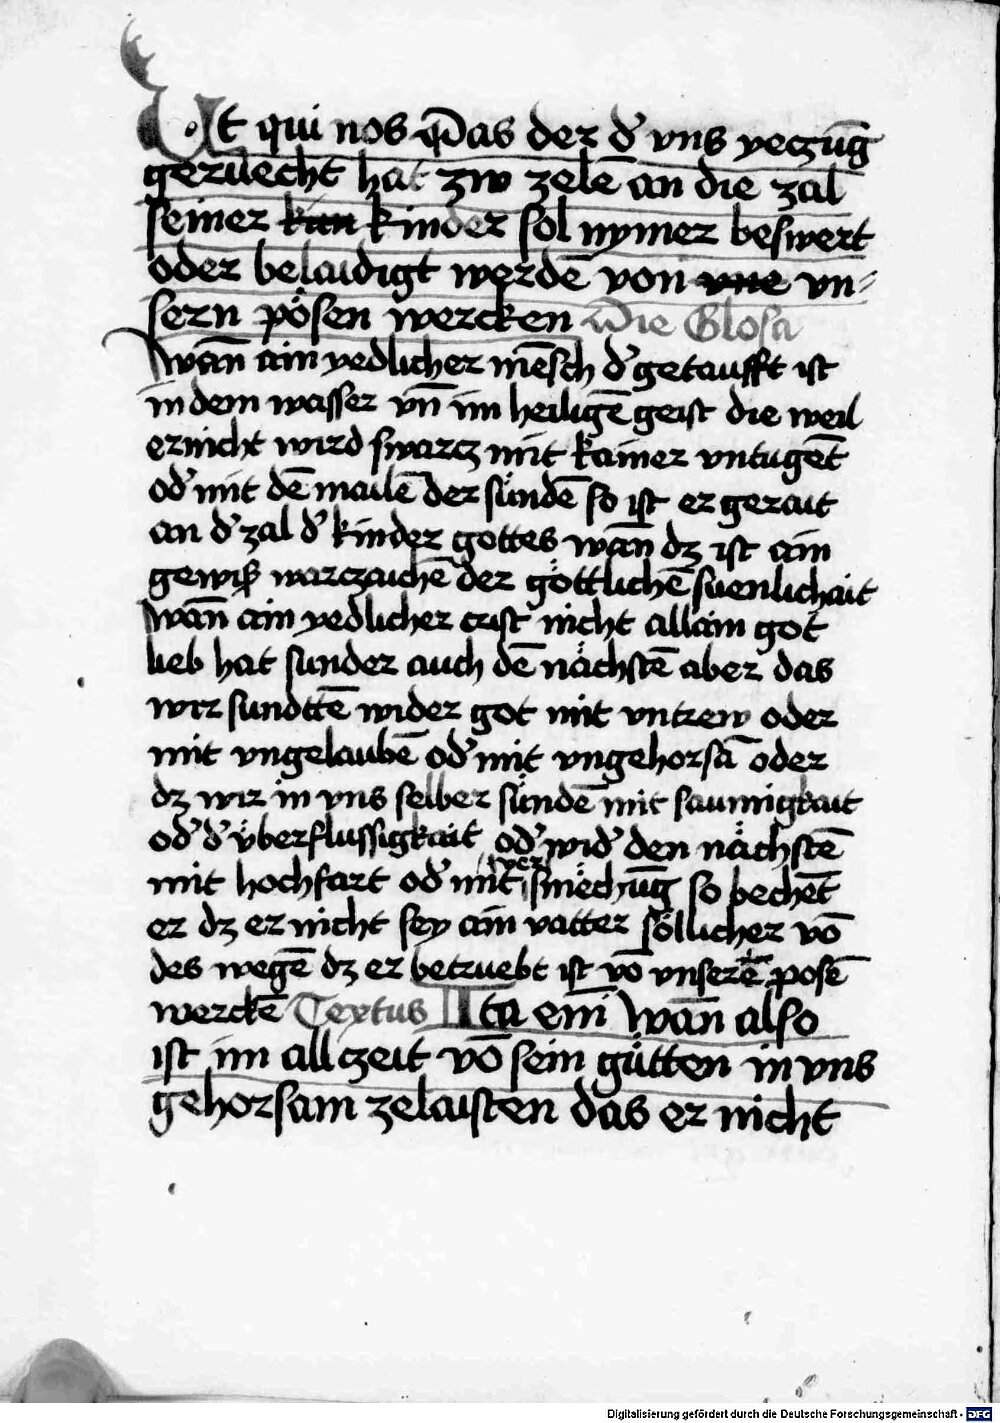 Ut qui nos Das der d' vns yeczūg
geruecht hat zw zelē an die zal
seiner kan kinder sol nymer beswert
oder belaidigt werdē von vne vn⸗
sern pösen wercken Die Glosa
Wan̄ ain yedlicher mēsch d' getaufft ist
in dem wasser vn̄ im heiligē geist die weil
er nicht wird swarcz mit kainer vntugēt
od' mit dē mailē der sündē so ist er gerait
an d' zal d' kinder gottes wan̄ dz ist ain
gewiß warczaichē der göttlichē suenlichait
Wan̄ ain yedlicher crist nicht allain got
lieb hat sunder auch dē nächstē aber das
wir sundttē wider got mit vntrew oder
mit vngelaubē od' mit vngehorsā oder
dz wir in vns selber sündē mit saumigkait
od' d' v̈berflussigkait od' wid' den nächstē
mit hochfart od' mit versmëchūg so bechēt
er dz er nicht sey ain vatter söllicher vō
des wegē dz er betruebt ist vō vnserē posē
werckē Textus Ita em̄ Wan̄ also
ist im all czeit vō sein gütten in vns
gehorsam zelaisten das er nicht
Digitalisierung gefördert durch die Deutsche Forschungsgemeinschaft - DFG